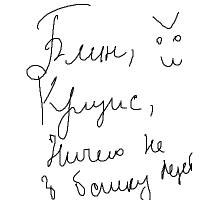 Блин,
Круис,
Ничего не
в башку лезет